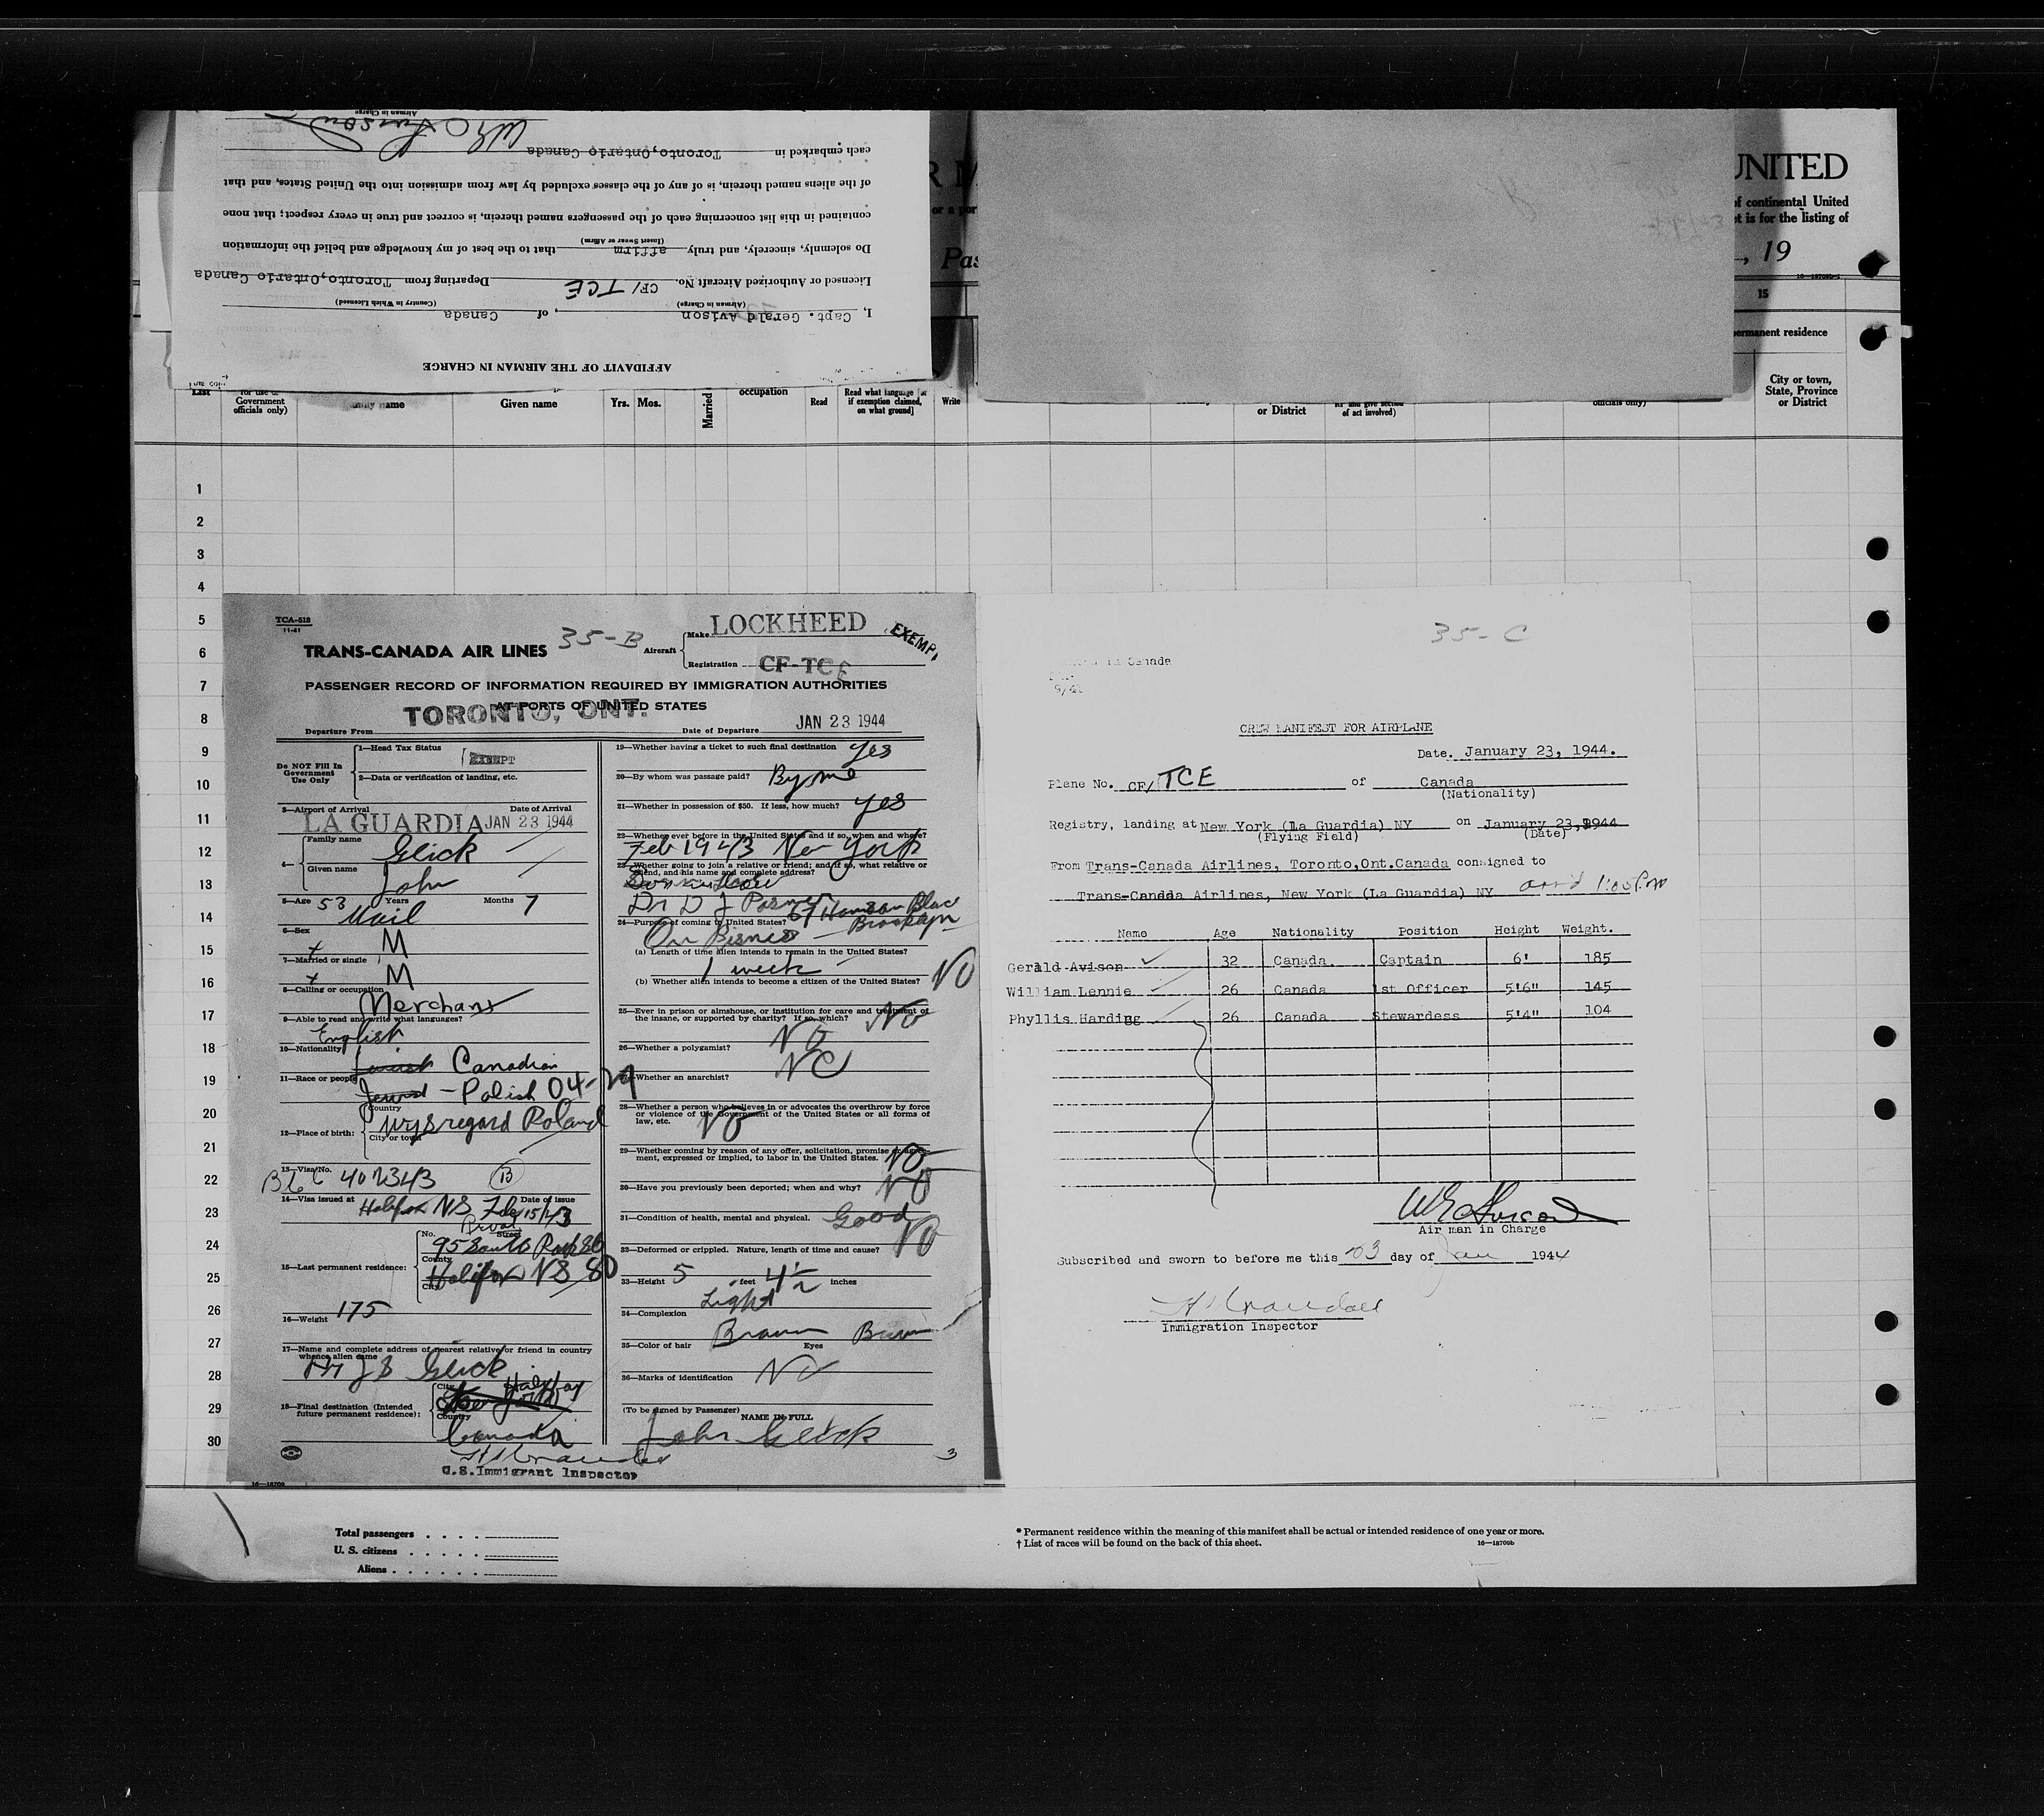 AFFIDAVIT OF THE AIRMAN IN CHARGE
I, Capt. Gerald Avison, of Canada
(Airman in Charge) (Country in Which Licensed)
Licensed or Authorized Aircraft No. CF/ TCE Departing from Toronto,Ontario Canada
Do solemnly, sincerely, and truly affirm that to the best of my knowledge and belief the information
(Insert Swear or Affirm)
contained in this list concerning each of the passengers named therein, is correct and true in every respect; that none
of the aliens named therein, is of any of the classes excluded by law from admission into the United States, and that
each embarked in Toronto,Ontario Canada
Airman in Charge
UNITED
of continental United
et is for the listing of
, 19
16—18709b-1
15
ermanent residence
City or town,
State, Province
or District
List
for use of
Government
officials only)
Family name
Given name
Yrs. Mos.
Married
occupation
Read
Read what language [or
if exemption claimed,
on what ground]
Write
or District
of act involved)
officials only)
1
2
3
4
5
6
7
8
9
10
11
12
13
14
15
16
17
18
19
20
21
22
23
24
25
26
27
28
29
30
TCA-518
11-41
TRANS-CANADA AIR LINES
35-B
Aircraft
Make LOCKHEED
Registration CF-TCE
EXEMPT
PASSENGER RECORD OF INFORMATION REQUIRED BY IMMIGRATION AUTHORITIES
AT PORTS OF UNITED STATES
Departure From TORONTO, ONT.
Date of Departure JAN 23 1944
Do NOT Fill In
Government
Use Only
1—Head Tax Status EXEMPT
2—Data or verification of landing, etc.
3—Airport of Arrival LA GUARDIA
Date of Arrival JAN 23 1944
4—
Family name Glick
Given name John
5—Age 53 Years Months 7
Mail
6—Sex M
7—Married or single M
8—Calling or occupation Merchant
9—Able to read and write what languages?
English
10—Nationality Canadian
11—Race or people Jewish - Polish 04-
12—Place of birth: Country
City or town
Poland
13—Visa No. 402343 B
14—Visa issued at Halifax NS Date of issue Feb 15/43
15—Last permanent residence:
No. Street
95 South Park St
County
City
Halifax NS
16—Weight 175
17—Name and complete address of nearest relative or friend in country
whence alien came
J S Glick
18—Final destination (Intended
future permanent residence):
City
Country
Canada
U.S. Immigrant Inspector
19—Whether having a ticket to such final destination Yes
20—By whom was passage paid? By me
21—Whether in possession of $50. If less, how much? yes
22—Whether ever before in the United States and if so, when and where?
Feb 1943 New York
23—Whether going to join a relative or friend; and if so, what relative or
friend, and his name and complete address?
Dr D J
Brooklyn
24—Purpose of coming to United States?
On Bisness
(a) Length of time alien intends to remain in the United States?
1 week
(b) Whether alien intends to become a citizen of the United States? NO
25—Ever in prison or almshouse, or institution for care and treatment of
the insane, or supported by charity? If so, which? No
NO
26—Whether a polygamist?
NO
27—Whether an anarchist?
28—Whether a person who believes in or advocates the overthrow by force
or violence of the Government of the United States or all forms of
law, etc.
NO
29—Whether coming by reason of any offer, solicitation, promise or agree-
ment, expressed or implied, to labor in the United States. NO
30—Have you previously been deported; when and why? NO
31—Condition of health, mental and physical. Good
32—Deformed or crippled. Nature, length of time and cause? NO
33—Height 5 feet 4½ inches
34—Complexion Light
35—Color of hair Brown Eyes Brown
36—Marks of identification No
(To be signed by Passenger)
NAME IN FULL
John Glick
3
35-C
Canada
CREW MANIFEST FOR AIRPLANE
Date. January 23, 1944.
Plane No. CF/ TCE of Canada
(Nationality)
Registry, landing at New York (La Guardia) NY on January 23, 1944
(Flying Field) (Date)
From Trans-Canada Airlines, Toronto,Ont.Canada consigned to
Trans-Canada Airlines, New York (La Guardia) NY arr'd 1:05 P.m
Name Age Nationality Position Height Weight.
Gerald Avison 32 Canada. Captain 6' 185
William Lennie 26 Canada 1st Officer 5'6" 145
Phyllis Harding 26 Canada Stewardess 5'4" 104
Air man in Charge
Subscribed and sworn to before me this 23 day of Jan 1944
Immigration Inspector
16—18709
Total passengers . . . .
U. S. citizens . . . . .
Aliens . . . . . .
* Permanent residence within the meaning of this manifest shall be actual or intended residence of one year or more.
† List of races will be found on the back of this sheet.
16—18709b